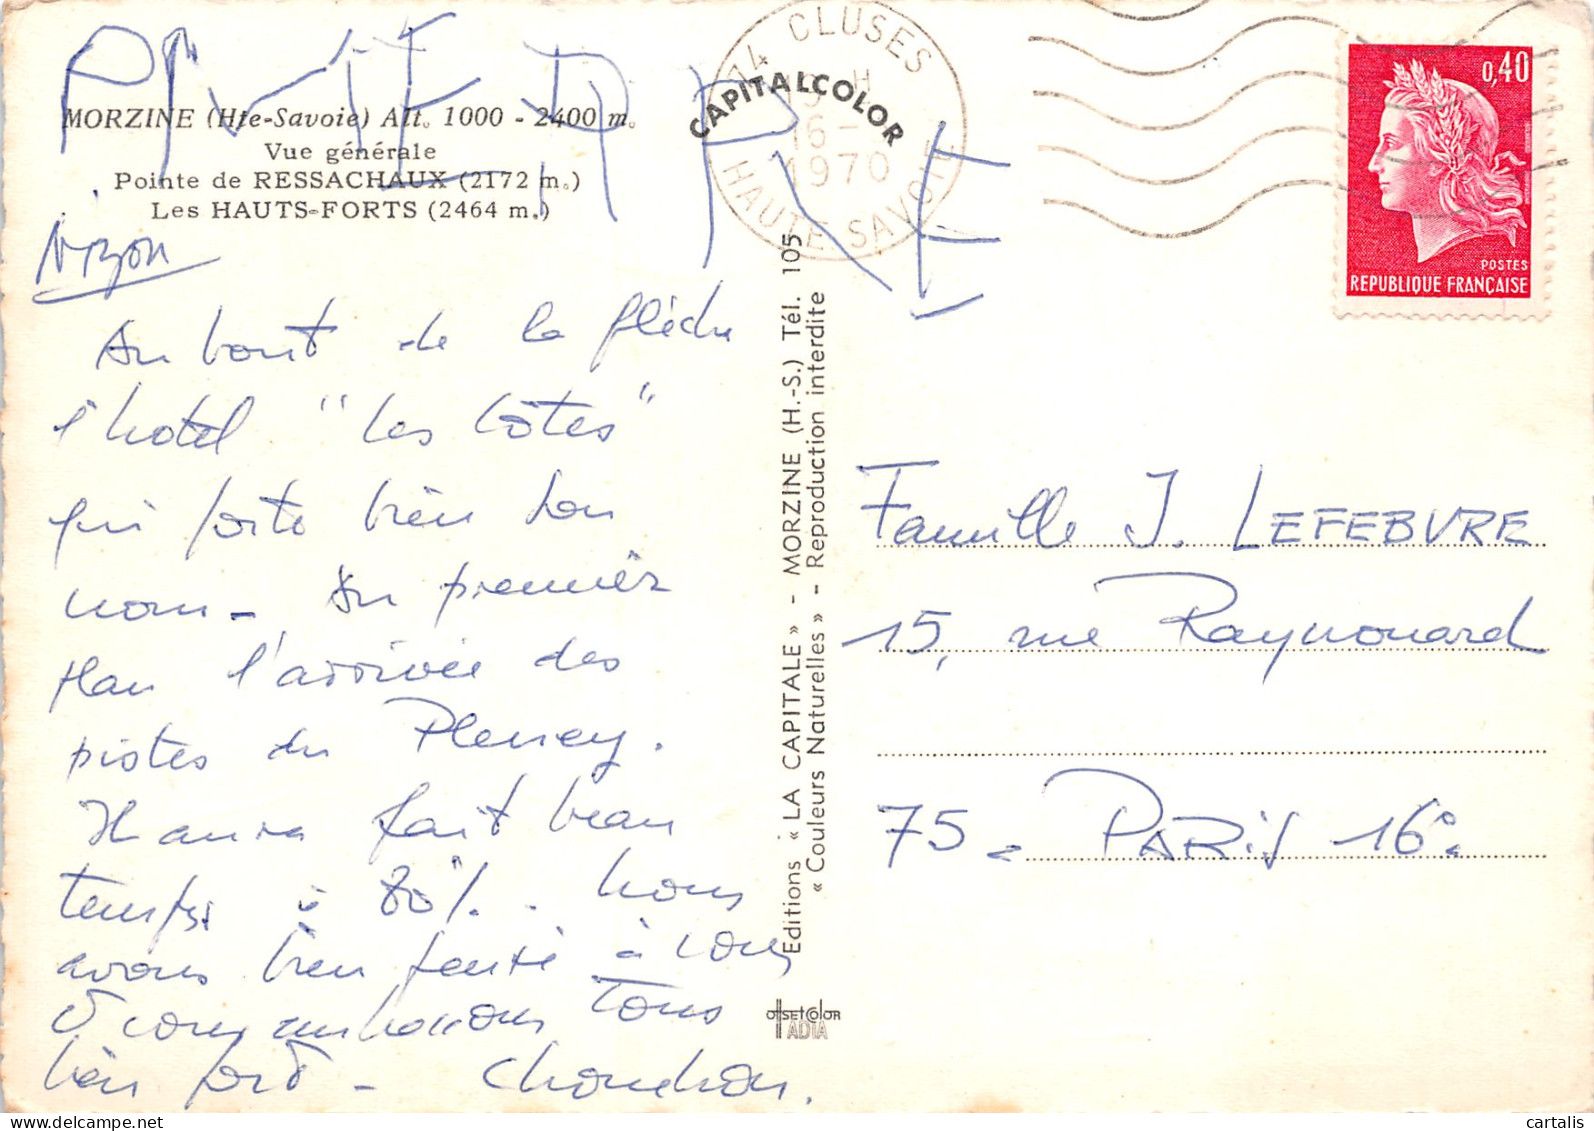 PIERRE
MORZINE (Hte-Savoie) Alt. 1000 - 2400 m.
Vue générale
Pointe de RESSACHAUX (2172 m.)
Les HAUTS-FORTS (2464 m.)
Au bout de la flèche
l'hotel "les côtes"
qui porte bien son
nom - Au premier
plan l'arrivée des
pistes du Pleney.
Il aura fait beau
temps à 80%. Nous
avons bien pensé à vous
& vous embrassons tous
bien fort - Chouchou.
CAPITALCOLOR
74 CLUSES
H
16 -
1970
HAUTE-SAVOIE
0,40
POSTES
REPUBLIQUE FRANÇAISE
Editions « LA CAPITALE » - MORZINE (H.-S.) Tél. 105
« Couleurs Naturelles » - Reproduction interdite
offsetcolor
IADIA
Famille J. LEFEBVRE
15, rue Raynouard
75 - PARIS 16e.
© cartalis